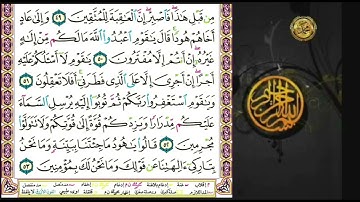 مِن قَبْلِ هَٰذَا فَاصْبِرْ إِنَّ الْعَاقِبَةَ لِلْمُتَّقِينَ ٤٩ وَإِلَىٰ عَادٍ
أَخَاهُمْ هُودًا قَالَ يَا قَوْمِ اعْبُدُوا اللَّهَ مَا لَكُم مِّنْ إِلَٰهٍ
غَيْرُهُ إِنْ أَنتُمْ إِلَّا مُفْتَرُونَ ٥٠ يَا قَوْمِ لَا أَسْأَلُكُمْ عَلَيْهِ
أَجْرًا إِنْ أَجْرِيَ إِلَّا عَلَى الَّذِي فَطَرَنِي أَفَلَا تَعْقِلُونَ ٥١
وَيَا قَوْمِ اسْتَغْفِرُوا رَبَّكُمْ ثُمَّ تُوبُوا إِلَيْهِ يُرْسِلِ السَّمَاءَ
عَلَيْكُم مِّدْرَارًا وَيَزِدْكُمْ قُوَّةً إِلَىٰ قُوَّتِكُمْ وَلَا تَتَوَلَّوْا
مُجْرِمِينَ ٥٢ قَالُوا يَا هُودُ مَا جِئْتَنَا بِبَيِّنَةٍ وَمَا نَحْنُ
بِتَارِكِي آلِهَتِنَا عَن قَوْلِكَ وَمَا نَحْنُ لَكَ بِمُؤْمِنِينَ ٥٣